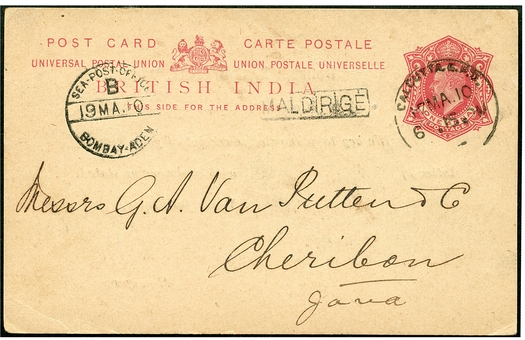 POST CARD CARTE POSTALE
UNIVERSAL POSTAL UNION UNION POSTALE UNIVERSELLE
BRITISH INDIA
THIS SIDE FOR THE ADDRESS
SEA-POST-OFFICE
B
19MA.10
BOMBAY-ADEN
ALDIRIGÉ
CALCUTTA
MA.10
Messrs G. A. Van Putten & C
Cheribon
Java